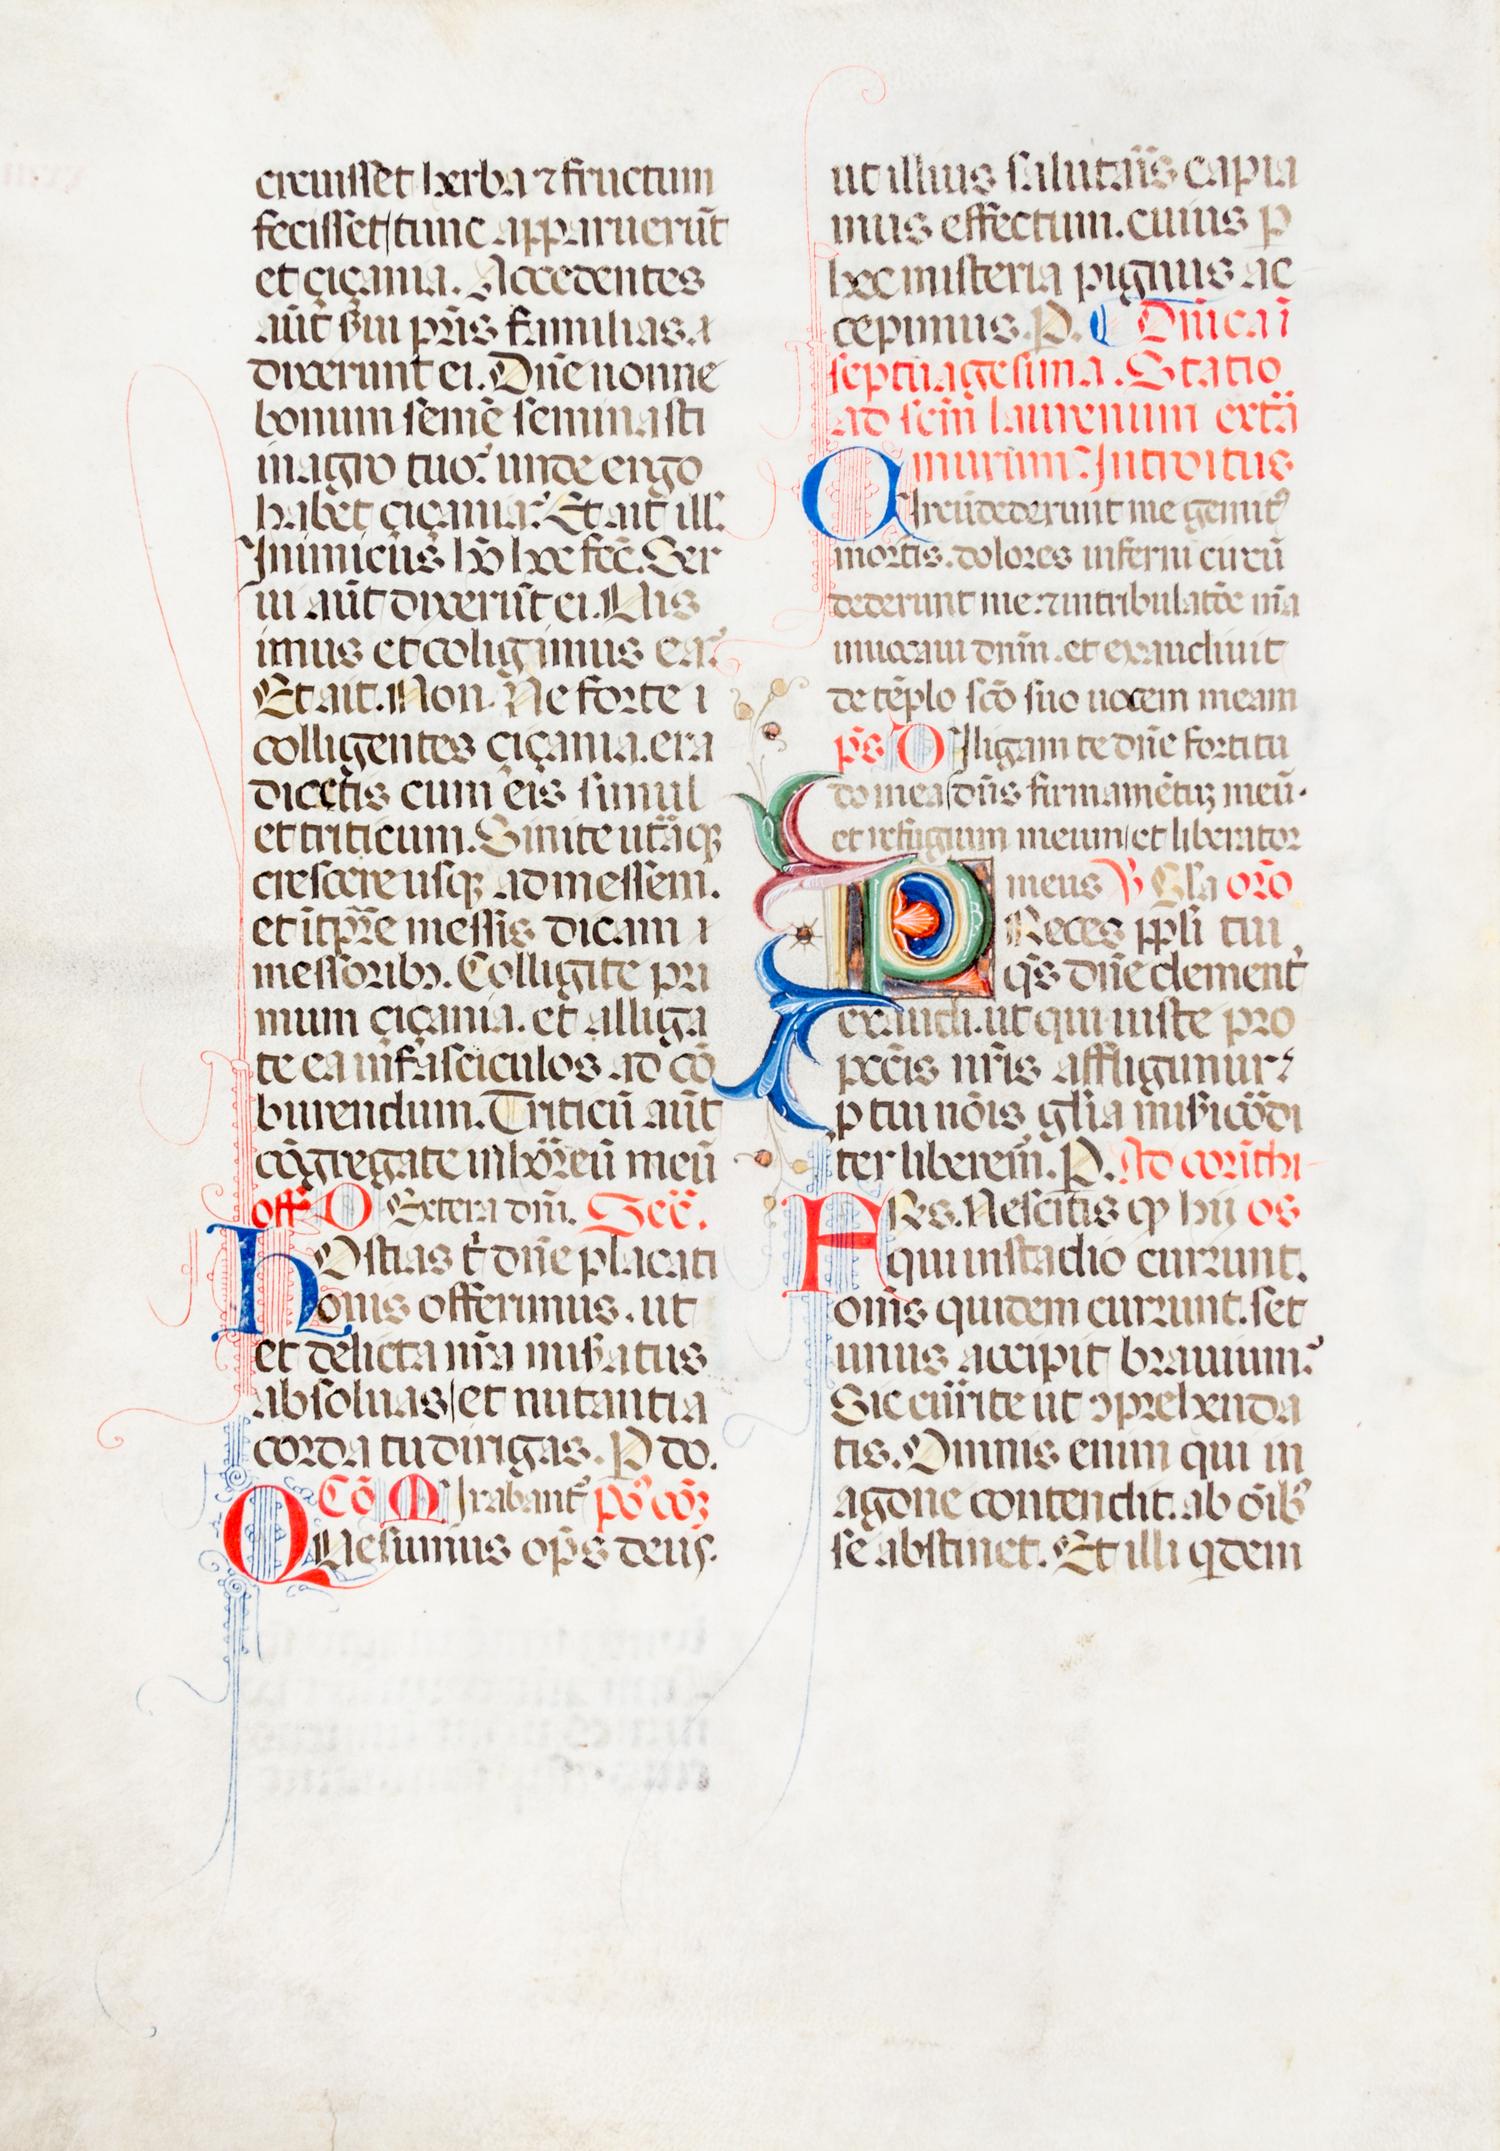 creuisset herba ⁊ fructum
fecisset/tunc apparuerūt
et çiçania. Accedentes
aūt s̄ui pr̄is familias. ⁊
dixerunt ei. Dn̄e nonne
bonum semē seminasti
in agro tuo? unde ergo
habēt çiçania? Et ait ill.
Inimicus hō hec fec̄. Ser
ui aūt dixerūt ei. Uis
imus et coligimus ea?
Et ait. Non. Ne forte ⁊
colligentes çiçania. era
dicetis cum eis simul
et triticum. Sinite utraqꝫ
crescere usqꝫ ad messem.
et ī tp̄re messis dicam ⁊
messoribꝫ. Colligite pri
mum çiçania. et alliga
te ea in fasciculos ad cō
burendum. Triticū aūt
cōgregate in horreū meū
off. Dextera dn̄i. Sec̄.
Hostias t̄ dn̄e placati
onis offerimus. ut
et delicta nr̄a mis̄atus
absoluas/et nutantia
corda tu dirigas. P do.
Cō Mirabant̄ pꝰ cōꝫ
Quesumus op̄s deus.
ut illius salutaris capia
mus effectum. cuius p
hec misteria pignus ac
cepimus. P. Dn̄ica ī
septuagesima. Statio
ad scm̄ laurentium extā
murum. Introitus
Circūdederunt me gemitꝰ
mortis. dolores inferni circū
dederunt me. ⁊ in tribulatōe m̄a
inuocaui dnm̄. et exaudiuit
de tēplo scō suo uocem meam
ps̄ Diligam te dn̄e fortitu
do mea/dn̄s firmamētuꝫ meū.
et refugium meum/et liberator
meus ℣ Gla orō
Preces ppli tui
qs̄ dn̄e clement̄
exaudi. ut qui iuste pro
pccīs nr̄is affligimur.
p tui nōis gl̄ia mis̄icōrdi
ter liberem̄. P. Ad corīthi
Fres. Nescitis qp hij os
qui in stadio currunt.
om̄s quidem currunt. set
unus accipit brauium?
Sic currite ut ꝯprehenda
tis. Omnis enim qui in
agone contendit. ab oībꝰ
se abstinet. Et illi qdem